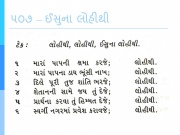 ૫૦૭ – ઈસુના લોહીથી
ટેક: લોહીથી, લોહીથી, ઈસુના લોહીથી.
૧ મારાં પાપની ક્ષમા કરજે; લોહીથી.
૨ મારાં પાપના ડાઘ ભૂંસી નાખ; લોહીથી.
૩ દિલે પૂરી તુજ શાંતિ ભરજે; લોહીથી.
૪ શેતાનની સામે જય તું દેજે; લોહીથી.
૫ પ્રાર્થના કરવા તું હિમ્મત દેજે; લોહીથી.
૬ સ્વર્ગી નગરમાં પ્રવેશ કરાવજે; લોહીથી.